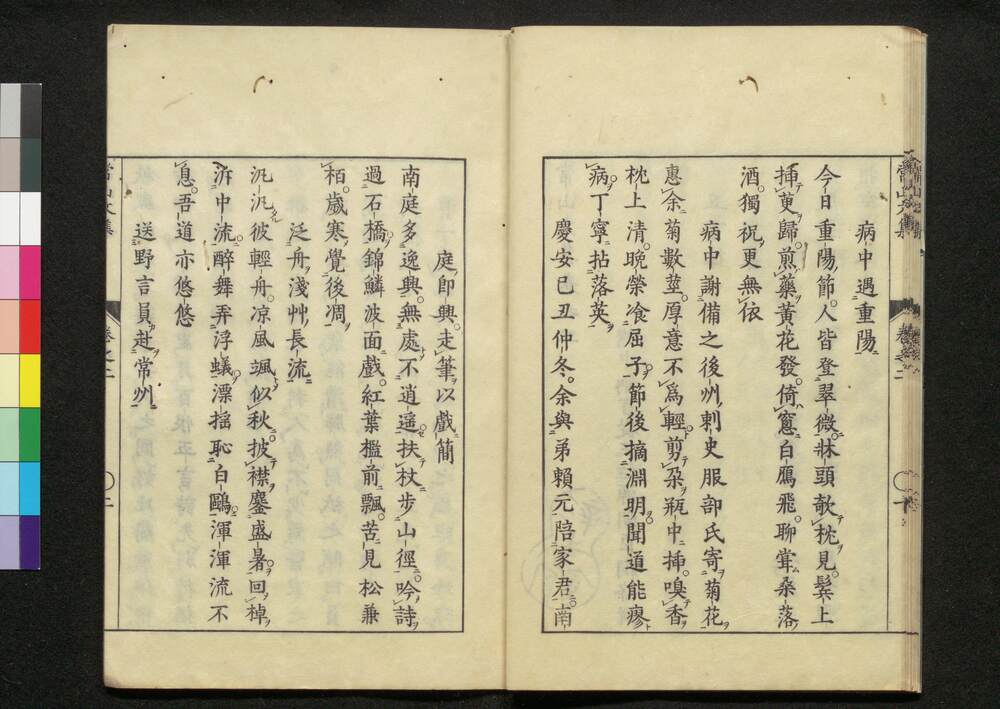 病中遇重陽
今日重陽節人皆登翠微牀頭欹枕見鬂上
挿萸歸煎藥黃花發倚窻白鴈飛聊甞桑落
酒獨祝更無依
病中謝備之後州刺史服部氏寄菊花
惠余菊數莖厚意不爲輕剪朶瓶中挿嗅香
枕上清晩榮飡屈子節後摘淵明聞道能瘳
病丁寧拈落英
慶安己丑仲冬余與弟賴元陪家君南
庭即興走筆以戲簡
南庭多逸興無處不逍遥扶杖步山徑吟詩
過石橋錦鱗波面戲紅葉檻前飄苦見松兼
栢歲寒覺後凋
泛舟淺艸長流
汎汎彼輕舟凉風颯似秋披襟鏖盛暑回棹
泝中流醉舞弄浮蟻漂揺恥白鷗渾渾流不
息吾道亦悠悠
送野言員赴常州
常山文集
卷之二